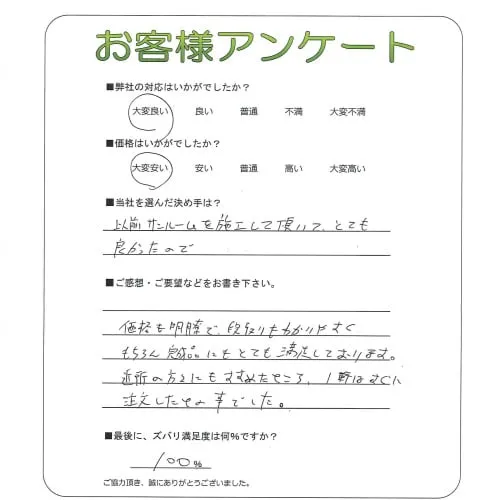 お客様アンケート
■弊社の対応はいかがでしたか？
大変良い 良い 普通 不満 大変不満
■価格はいかがでしたか？
大変安い 安い 普通 高い 大変高い
■当社を選んだ決め手は？
以前サンルームを施工して頂いて、とても
良かったので
■ご感想・ご要望などをお書き下さい。
価格も明瞭で、段取りもわかりやすく
もちろん完成品にもとても満足しております。
近所の方にもすすめたところ、1軒はすぐに
注文したとの事でした。
■最後に、ズバリ満足度は何%ですか？
100%
ご協力頂き、誠にありがとうございました。